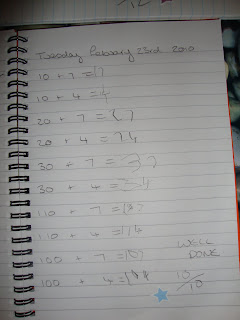 Tuesday February 23rd 2010
10 + 7 = 17
10 + 4 = 14
20 + 7 = 27
20 + 4 = 24
30 + 7 = 37
30 + 4 = 34
110 + 7 = 117
110 + 4 = 114
100 + 7 = 107
100 + 4 =
WELL
DONE
10/10